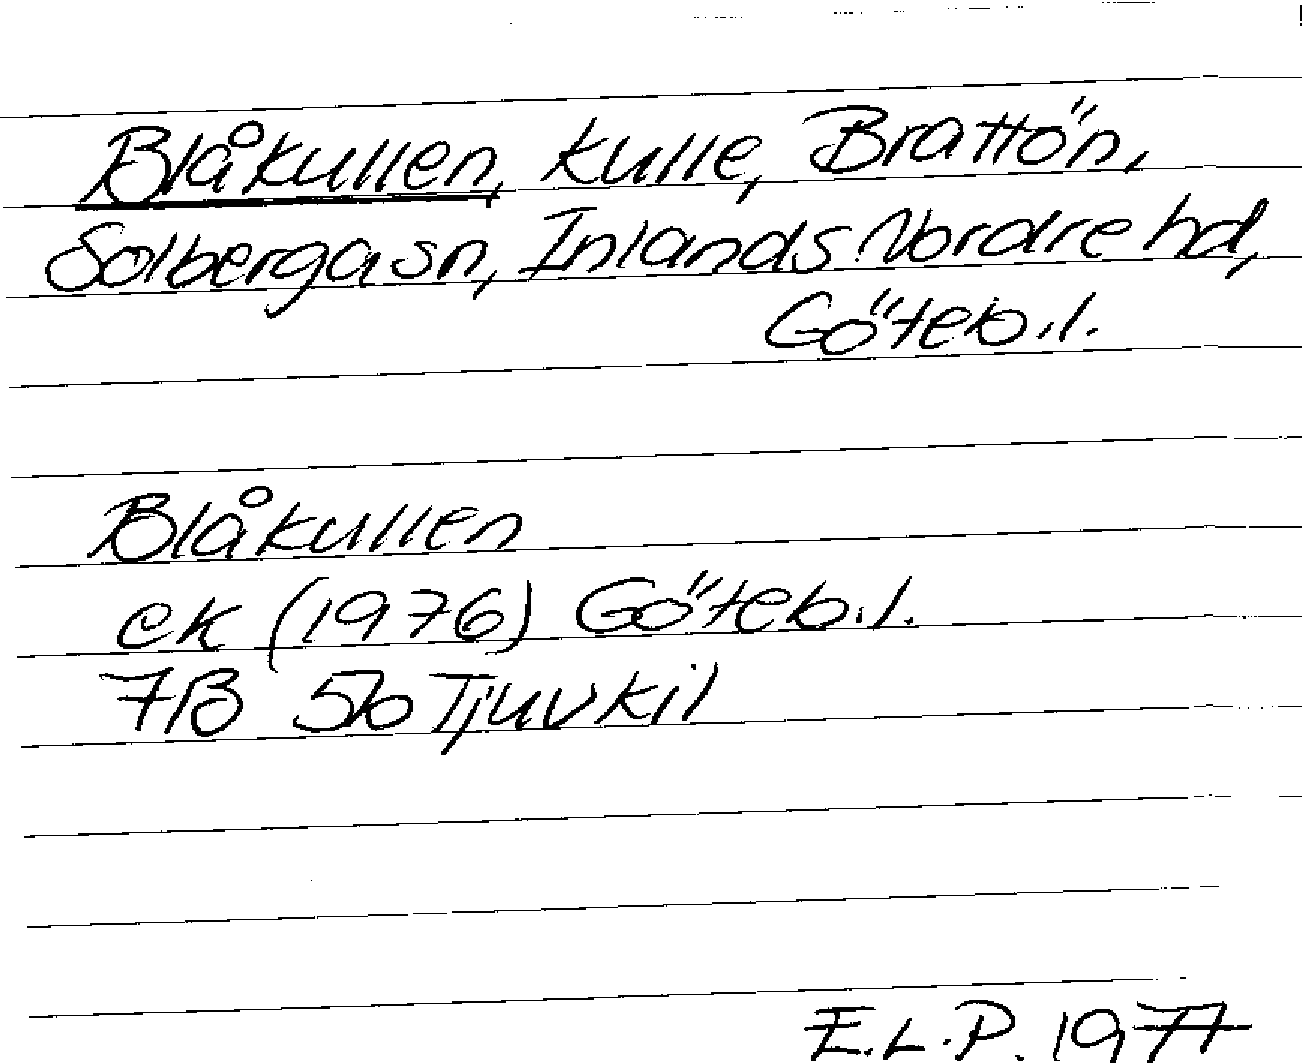 Blåkullen, kulle, Brattön,
Solberga sn, Inlands Nordre hd,
Göteb.l.
Blåkullen
ek (1976) Göteb.l.
7B 5b Tjuvkil
E.L.P. 1977